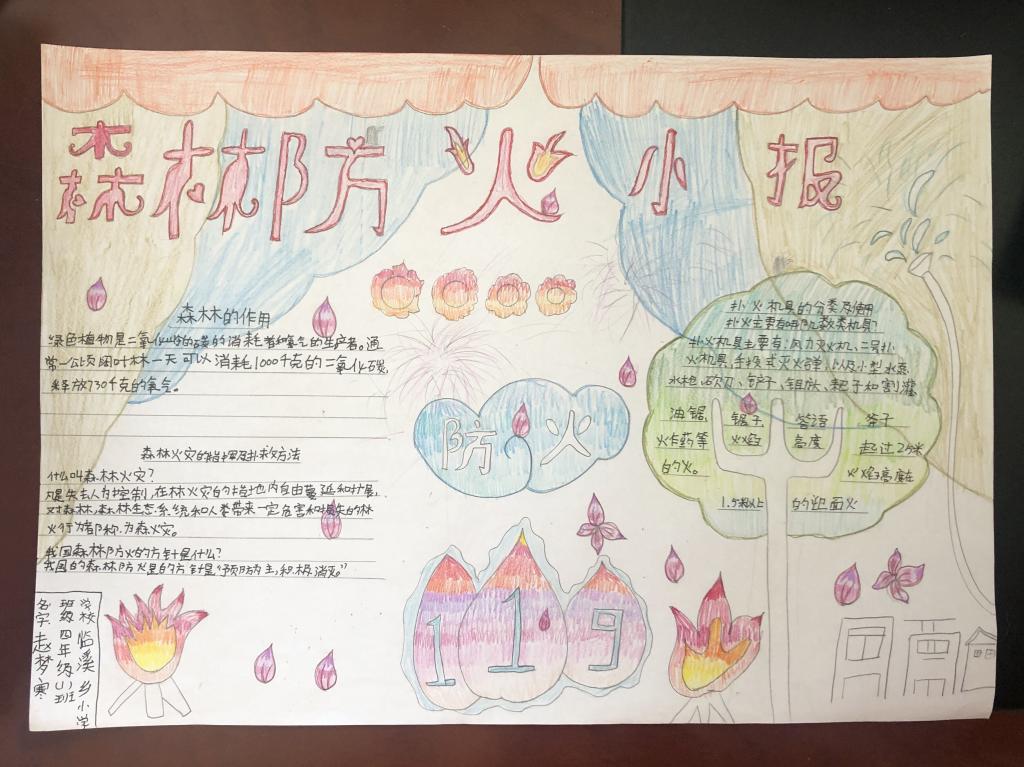 森林防火小报
森林的作用
绿色植物是二氧化碳的消耗者和氧气的生产者。通
常一公顷阔叶林一天可以消耗1000千克的二氧化碳,
释放730千克的氧气。
森林火灾的指挥及扑救方法
什么叫森林火灾?
凡是失去人为控制,在林火灾的林地内自由蔓延和扩展,
对森林,森林生态系统和人类带来一定危害和损失的林
火行为都称为森火灾。
我国森林防火的方针是什么?
我国的森林防火是的方针是“预防为主,积极消灭。”
防火
119
扑火机具的分类及使用
扑火主要有哪几款类机具?
扑火机具主要有:风力灭火机、二号扑
火机具,手投式灭火弹,以及小型水泵
水枪、砍刀、铲子、钼、耙子和割灌
油锯、锯子 答语 斧子
炸药等 火焰 高度 超过2.5米
的火。 火焰高度在
1.5米以上 的迎面火
学校 临溪乡小学
班级 四年级(1)班
名字 赵梦寒